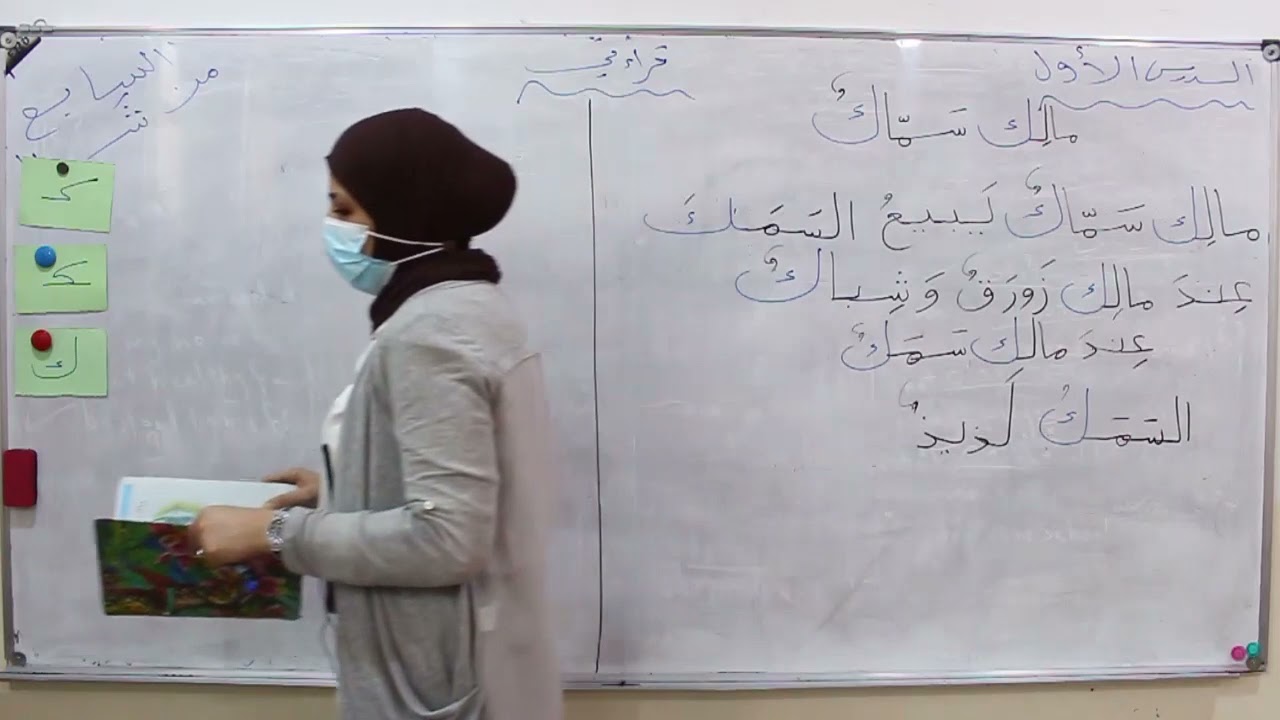 الدرس الأول
قراءتي
مالِك سَمّاكٌ
مالِك سَمّاكٌ يَبيعُ السَمَكَ
عِندَ مالِك زَورَقٌ وَشِباكٌ
عِندَ مالِك سَمَكٌ
السَمَكُ لَذيذٌ
من
السابع
كـ
ـكـ
ك